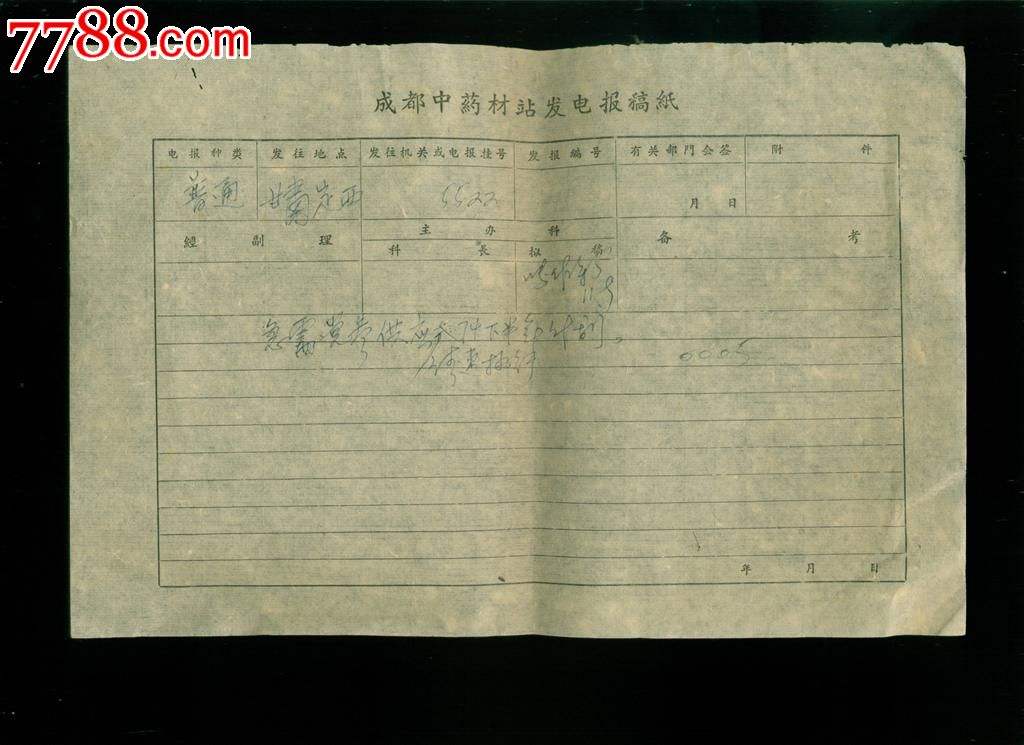 7788.com
成都中药材站发电报稿紙
电报种类 发往地点 发往机关或电报挂号 发报编号 有关部門会签 附件
普通 甘肅定西 5522 月 日
經副理 主办科 备考
科長 拟稿
急需党参供应 下半年计划。
0005
年 月 日